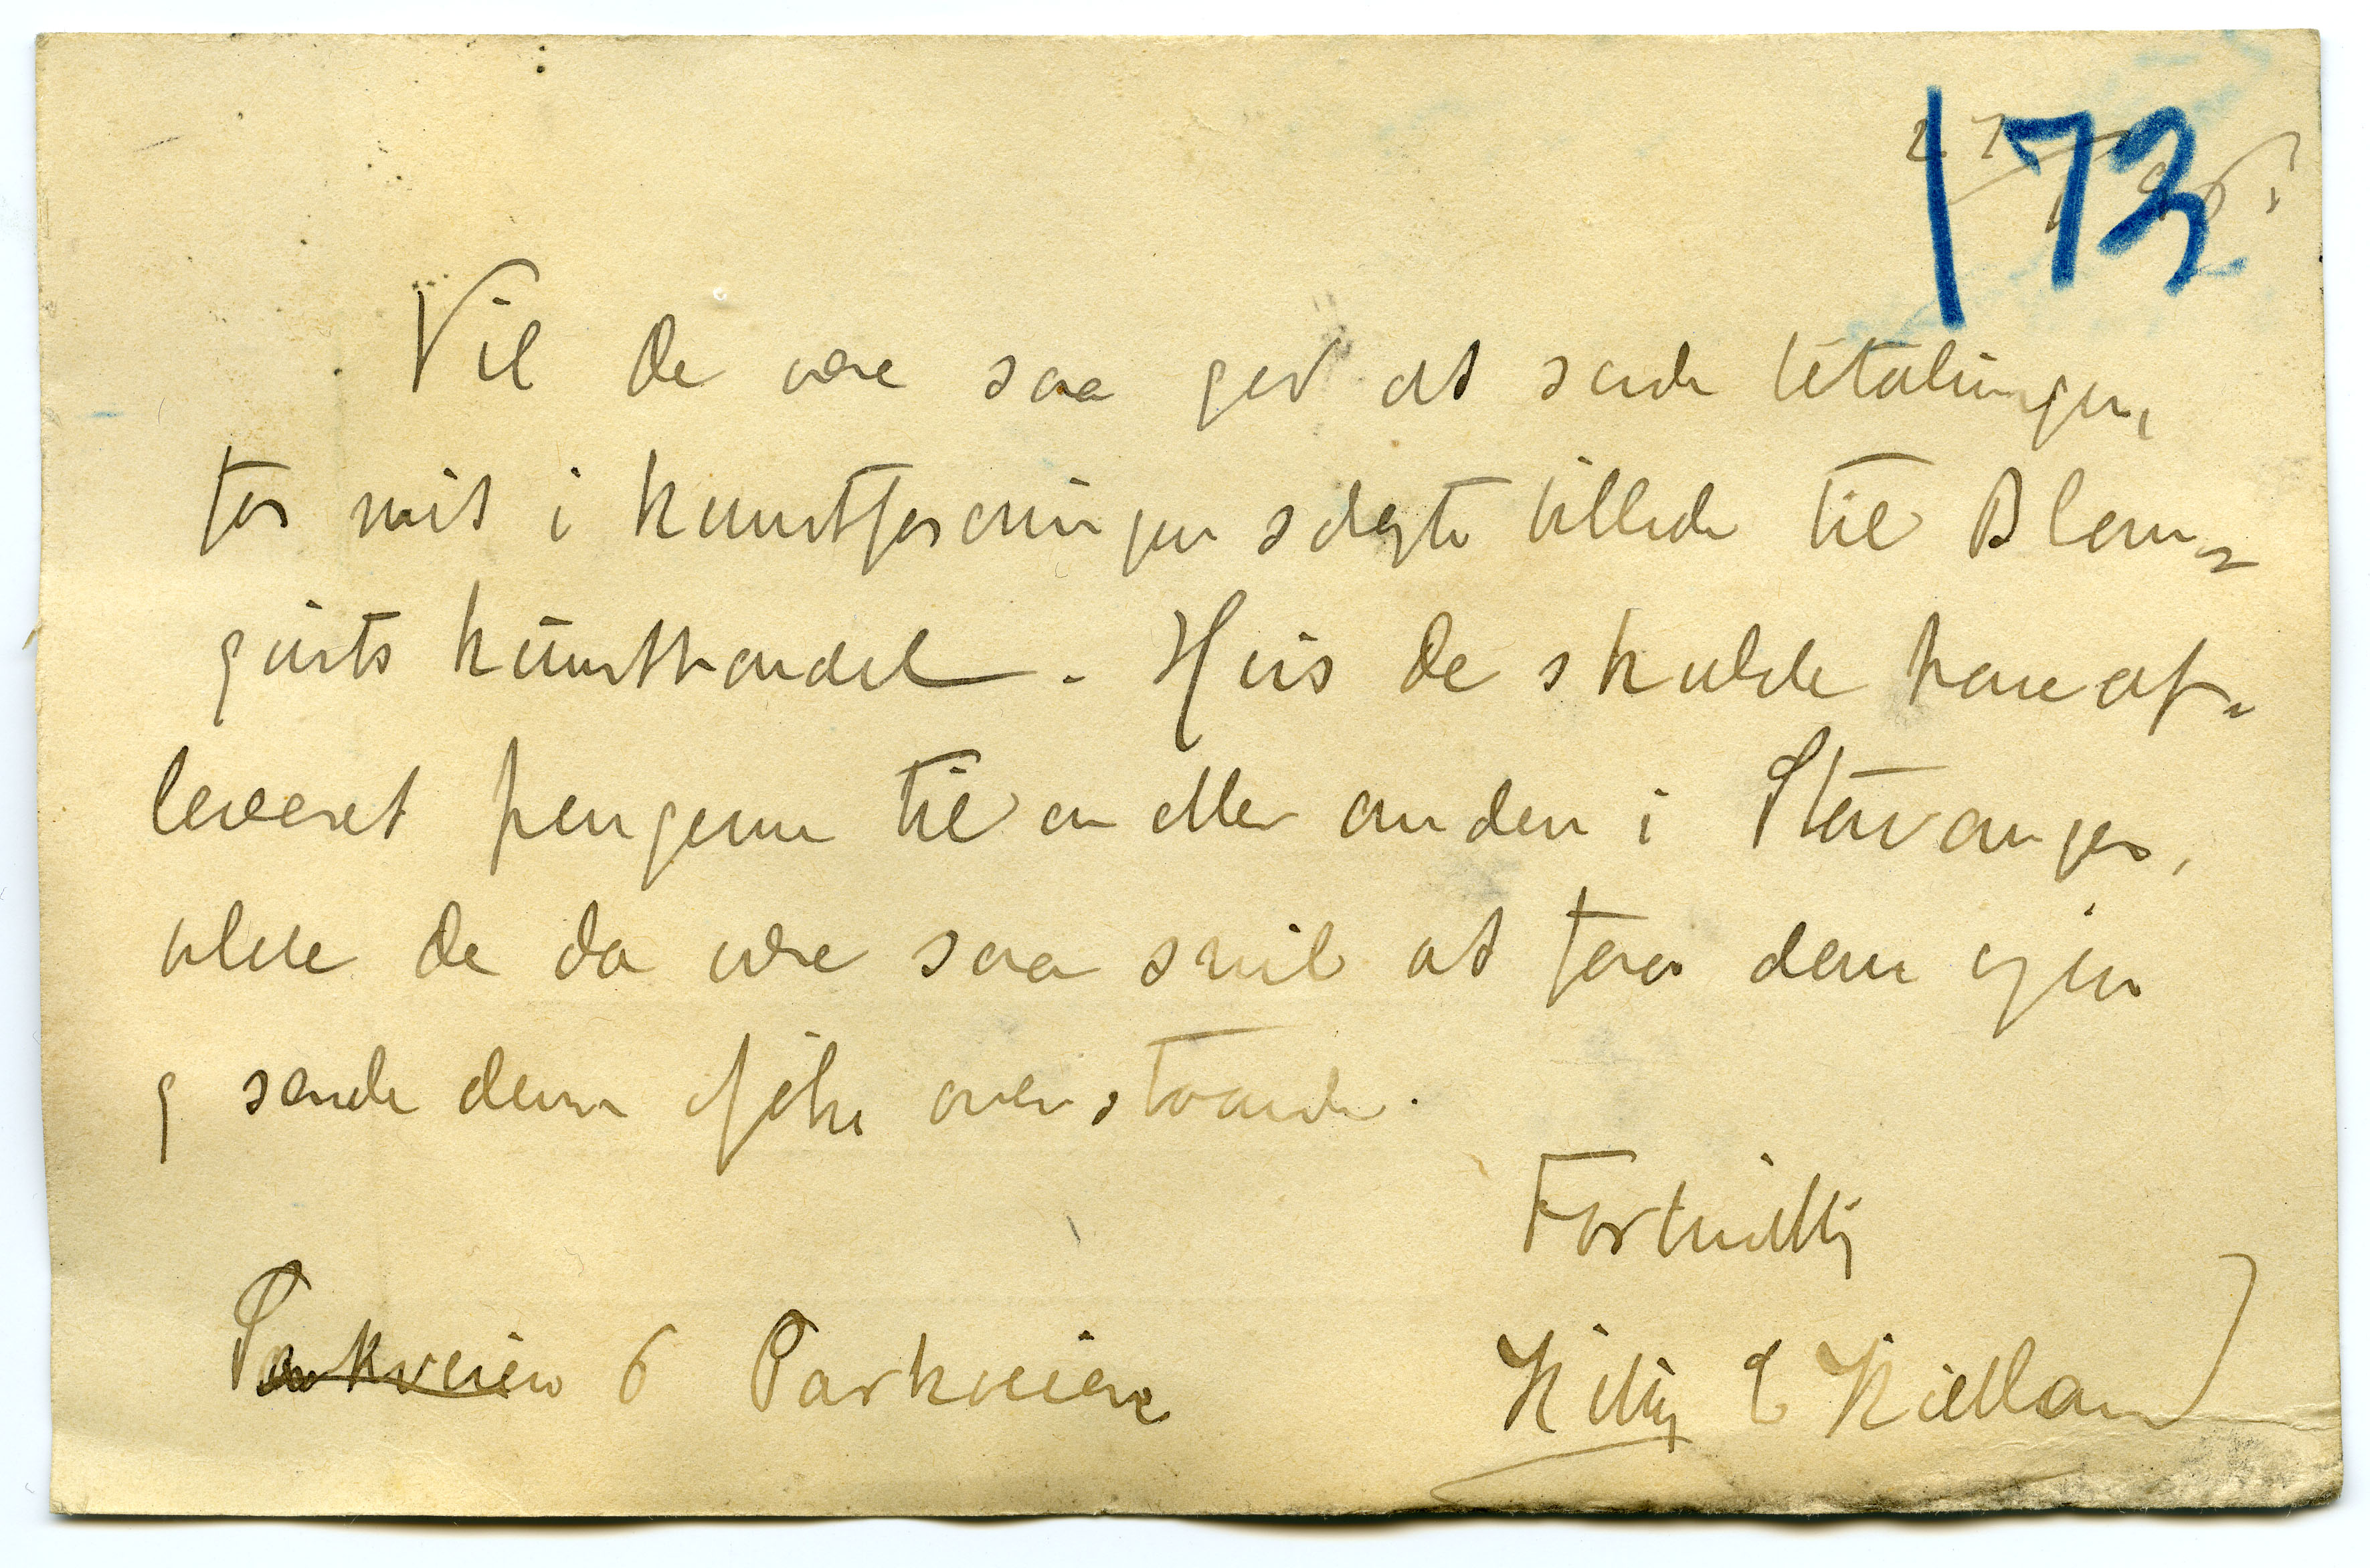 173
Vil De være saa god at sende betalingen,
for mit i kunstforeningen solgte billede til Blom=
qvists kunsthandel. Hvis De skulde have af=
leveret pengene til en eller anden i Stavanger,
vilde De da være saa snil at faa dem igjen
og sende dem ifølge ovenstaaende.
Forbindtlig
Parkveien 6 Parkveien
Kitty L Kielland